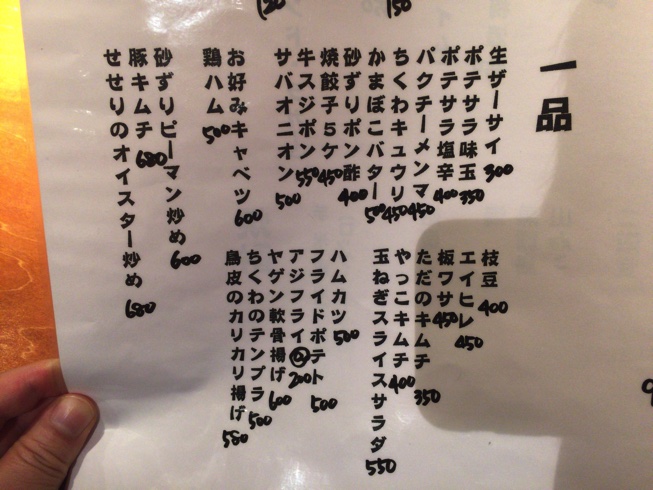 一品
生ザーサイ 300
ポテサラ味玉 350
ポテサラ塩辛 400
パクチーメンマ 450
ちくわキュウリ 450
かまぼこバター 500
砂ずりポン酢 400
焼餃子5ケ 450
牛スジポン 550
サバオニオン 500
お好みキャベツ 600
鶏ハム 500
砂ずりピーマン炒め 600
豚キムチ 680
せせりのオイスター炒め 680
枝豆 400
エイヒレ 450
板ワサ 450
ただのキムチ 350
やっこキムチ 400
玉ねぎスライスサラダ 550
ハムカツ 500
フライドポテト 500
アジフライ 200
ヤゲン軟骨揚げ 600
ちくわのテンプラ 500
鳥皮のカリカリ揚げ 580